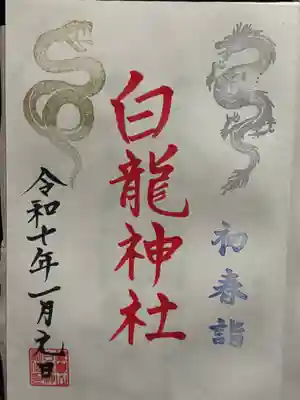 初春詣
白龍神社
令和七年一月元日